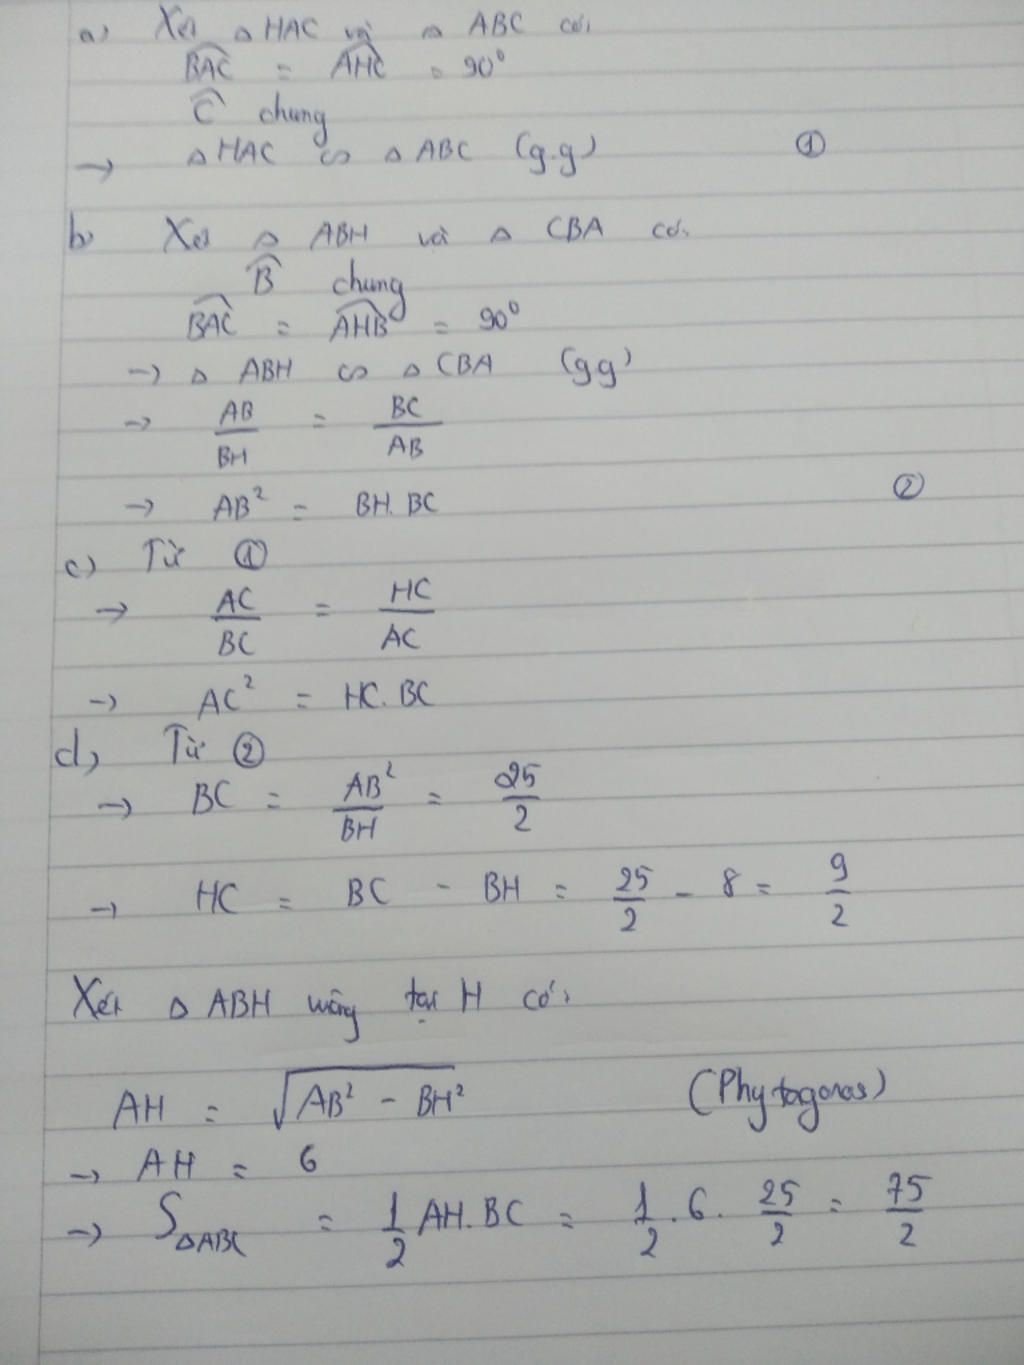 a) Xét △ HAC và △ ABC có:
BAC = AHC = 90°
C chung
→ △ HAC ∽ △ ABC (g.g) ①
b) Xét △ ABH và △ CBA có:
B chung
BAC = AHB = 90°
→ △ ABH ∽ △ CBA (gg)
→ AB/BH = BC/AB
→ AB² = BH. BC ②
c) Từ ①
→ AC/BC = HC/AC
→ AC² = HC. BC
d) Từ ②
→ BC = AB²/BH = 25/2
→ HC = BC - BH = 25/2 - 8 = 9/2
Xét △ ABH vuông tại H có:
AH = √(AB² - BH²) (Phytagoras)
→ AH = 6
→ S△ABC = 1/2 AH. BC = 1/2 . 6 . 25/2 = 75/2